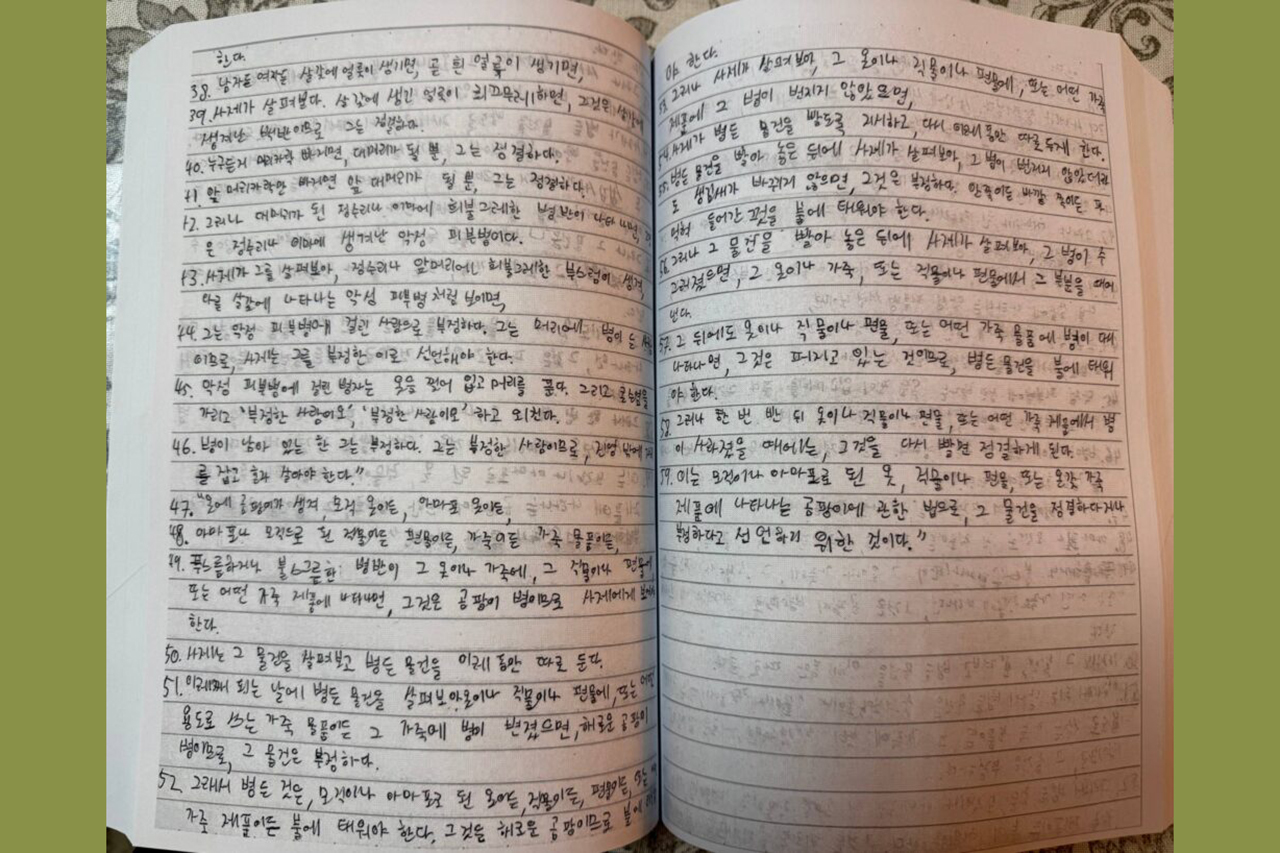 한다.
38. 남자든 여자든 살갗에 얼룩이 생기면, 곧 흰 얼룩이 생기면,
39. 사제가 살펴본다. 살갗에 생긴 얼룩이 희끄무레하면, 그것은 살갗에
생겨난 백반이므로 그는 정결하다.
40. 누구든지 머리카락 빠지면, 대머리가 될 뿐, 그는 정결하다.
41. 앞 머리카락만 빠지면 앞 대머리가 될 뿐, 그는 정결하다.
42. 그러나 대머리가 된 정수리나 이마에 희불그레한 병반이 나타나면,
은 정수리나 이마에 생겨난 악성 피부병이다.
43. 사제가 그를 살펴보아, 정수리나 앞머리에 희불그레한 부스럼이 생겨,
다른 살갗에 나타나는 악성 피부병 처럼 보이면,
44. 그는 악성 피부병에 걸린 사람으로 부정하다. 그는 머리에 병이 든
이므로, 사제는 그를 부정한 이로 선언해야 한다.
45. 악성 피부병에 걸린 병자는 옷을 찢어 입고 머리를 푼다. 그리고 콧수염을
가리고 '부정한 사람이오', '부정한 사람이오' 하고 외친다.
46. 병이 남아 있는 한 그는 부정하다. 그는 부정한 사람이므로, 진영 밖에
를 잡고 혼자 살아야 한다."
47. "옷에 곰팡이가 생겨, 모직 옷이든, 아마포 옷이든,
48. 아마포나 모직으로 된 직물이든 편물이든, 가죽이든 가죽 물품이든,
49. 푸르스름하거나 불그스름한 병반이 그 옷이나 가죽에, 그 직물이나 편물에
또는 어떤 가죽 제품에 나타나면, 그것은 곰팡이 병이므로 사제에게 보여야
한다.
50. 사제는 그 물건을 살펴보고 병든 물건을 이레 동안 따로 둔다.
51. 이레째 되는 날에 병든 물건을 살펴보아 옷이나 직물이나 편물에, 또는 어떤
용도로 쓰는 가죽 물품이든 그 가죽에 병이 번졌으면, 해로운 곰팡이
병이므로, 그 물건은 부정하다.
52. 그래서 병든 것은, 모직이나 아마포로 된 옷이든, 직물이든, 편물이든, 또는
가죽 제품이든 불에 태워야 한다. 그것은 해로운 곰팡이므로 불에
야 한다.
53. 그러나 사제가 살펴보아, 그 옷이나 직물이나 편물에, 또는 어떤 가죽
제품에 그 병이 번지지 않았으면,
54. 사제가 병든 물건을 빨도록 지시하고, 다시 이레 동안 따로 두게 한다.
55. 병든 물건을 빨아 놓은 뒤에 사제가 살펴보아, 그 병이 번지지 않았더라
도 생김새가 바뀌지 않으면, 그것은 부정하다. 안쪽이든 바깥 쪽이든 파
먹혀 들어간 것을 불에 태워야 한다.
56. 그러나 그 물건을 빨아 놓은 뒤에 사제가 살펴보아, 그 병이 수
그러졌으면, 그 옷이나 가죽, 또는 직물이나 편물에서 그 부분을 떼어
낸다.
57. 그 뒤에도 옷이나 직물이나 편물, 또는 어떤 가죽 물품에 병이 다시
나타나면, 그것은 퍼지고 있는 것이므로, 병든 물건을 불에 태워
야 한다.
58. 그러나 한 번 빤 뒤 옷이나 직물이나 편물, 또는 어떤 가죽 제품에서 병
이 사라졌을 때에는, 그것을 다시 빨면 정결하게 된다.
59. 이는 모직이나 아마포로 된 옷, 직물이나 편물, 또는 온갖 가죽
제품에 나타나는 곰팡이에 관한 법으로, 그 물건을 정결하다거나
부정하다고 선언하기 위한 것이다."